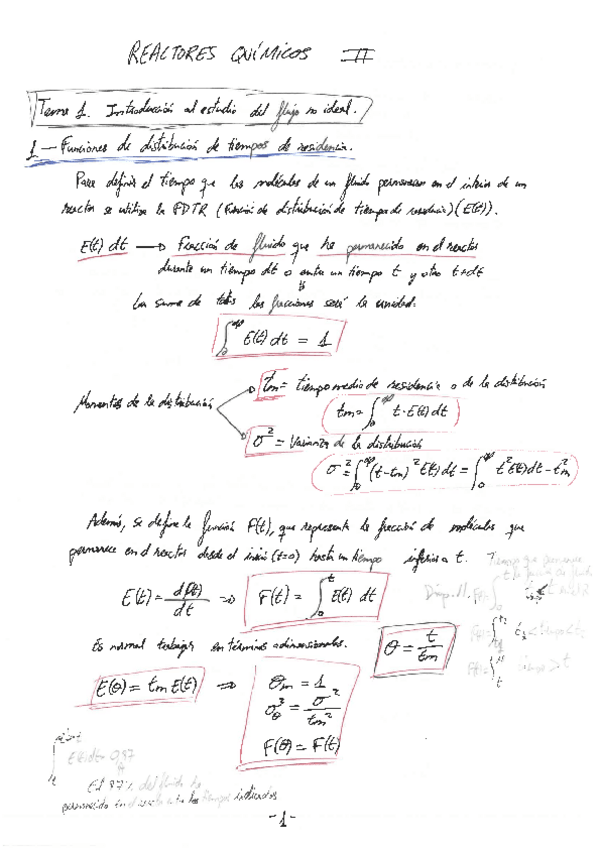 REACTORES QUÍMICOS II
Tema 1. Introducción al estudio del flujo no ideal.
1 — Funciones de distribución de tiempos de residencia.
Para definir el tiempo que las moléculas de un fluido permanecen en el interior de un
reactor se utiliza la FDTR (Función de distribución de tiempos de residencia) (E(t)).
E(t) dt → Fracción de fluido que ha permanecido en el reactor
durante un tiempo dt o entre un tiempo t y otro t+dt
La suma de todas las fracciones será la unidad.
∫₀^∞ E(t) dt = 1
Momentos de la distribución
tm = tiempo medio de residencia o de la distribución
tm = ∫₀^∞ t·E(t) dt
σ² = Varianza de la distribución
σ² = ∫₀^∞ (t-tm)² E(t) dt = ∫₀^∞ t² E(t) dt - tm²
Además, se define la función F(t), que representa la fracción de moléculas que
permanece en el reactor desde el inicio (t=0) hasta un tiempo inferior a t.
Tiempo que permanece
E(t) = dF(t)/dt ⇒ F(t) = ∫₀^t E(t) dt
Es normal trabajar en términos adimensionales.
θ = t/tm
E(θ) = tm E(t) ⇒
θm = 1
σθ² = σ²/tm²
F(θ) = F(t)
E(t)dt = 0,97
El 97% del fluido ha
permanecido en el reactor los tiempos indicados
-1-